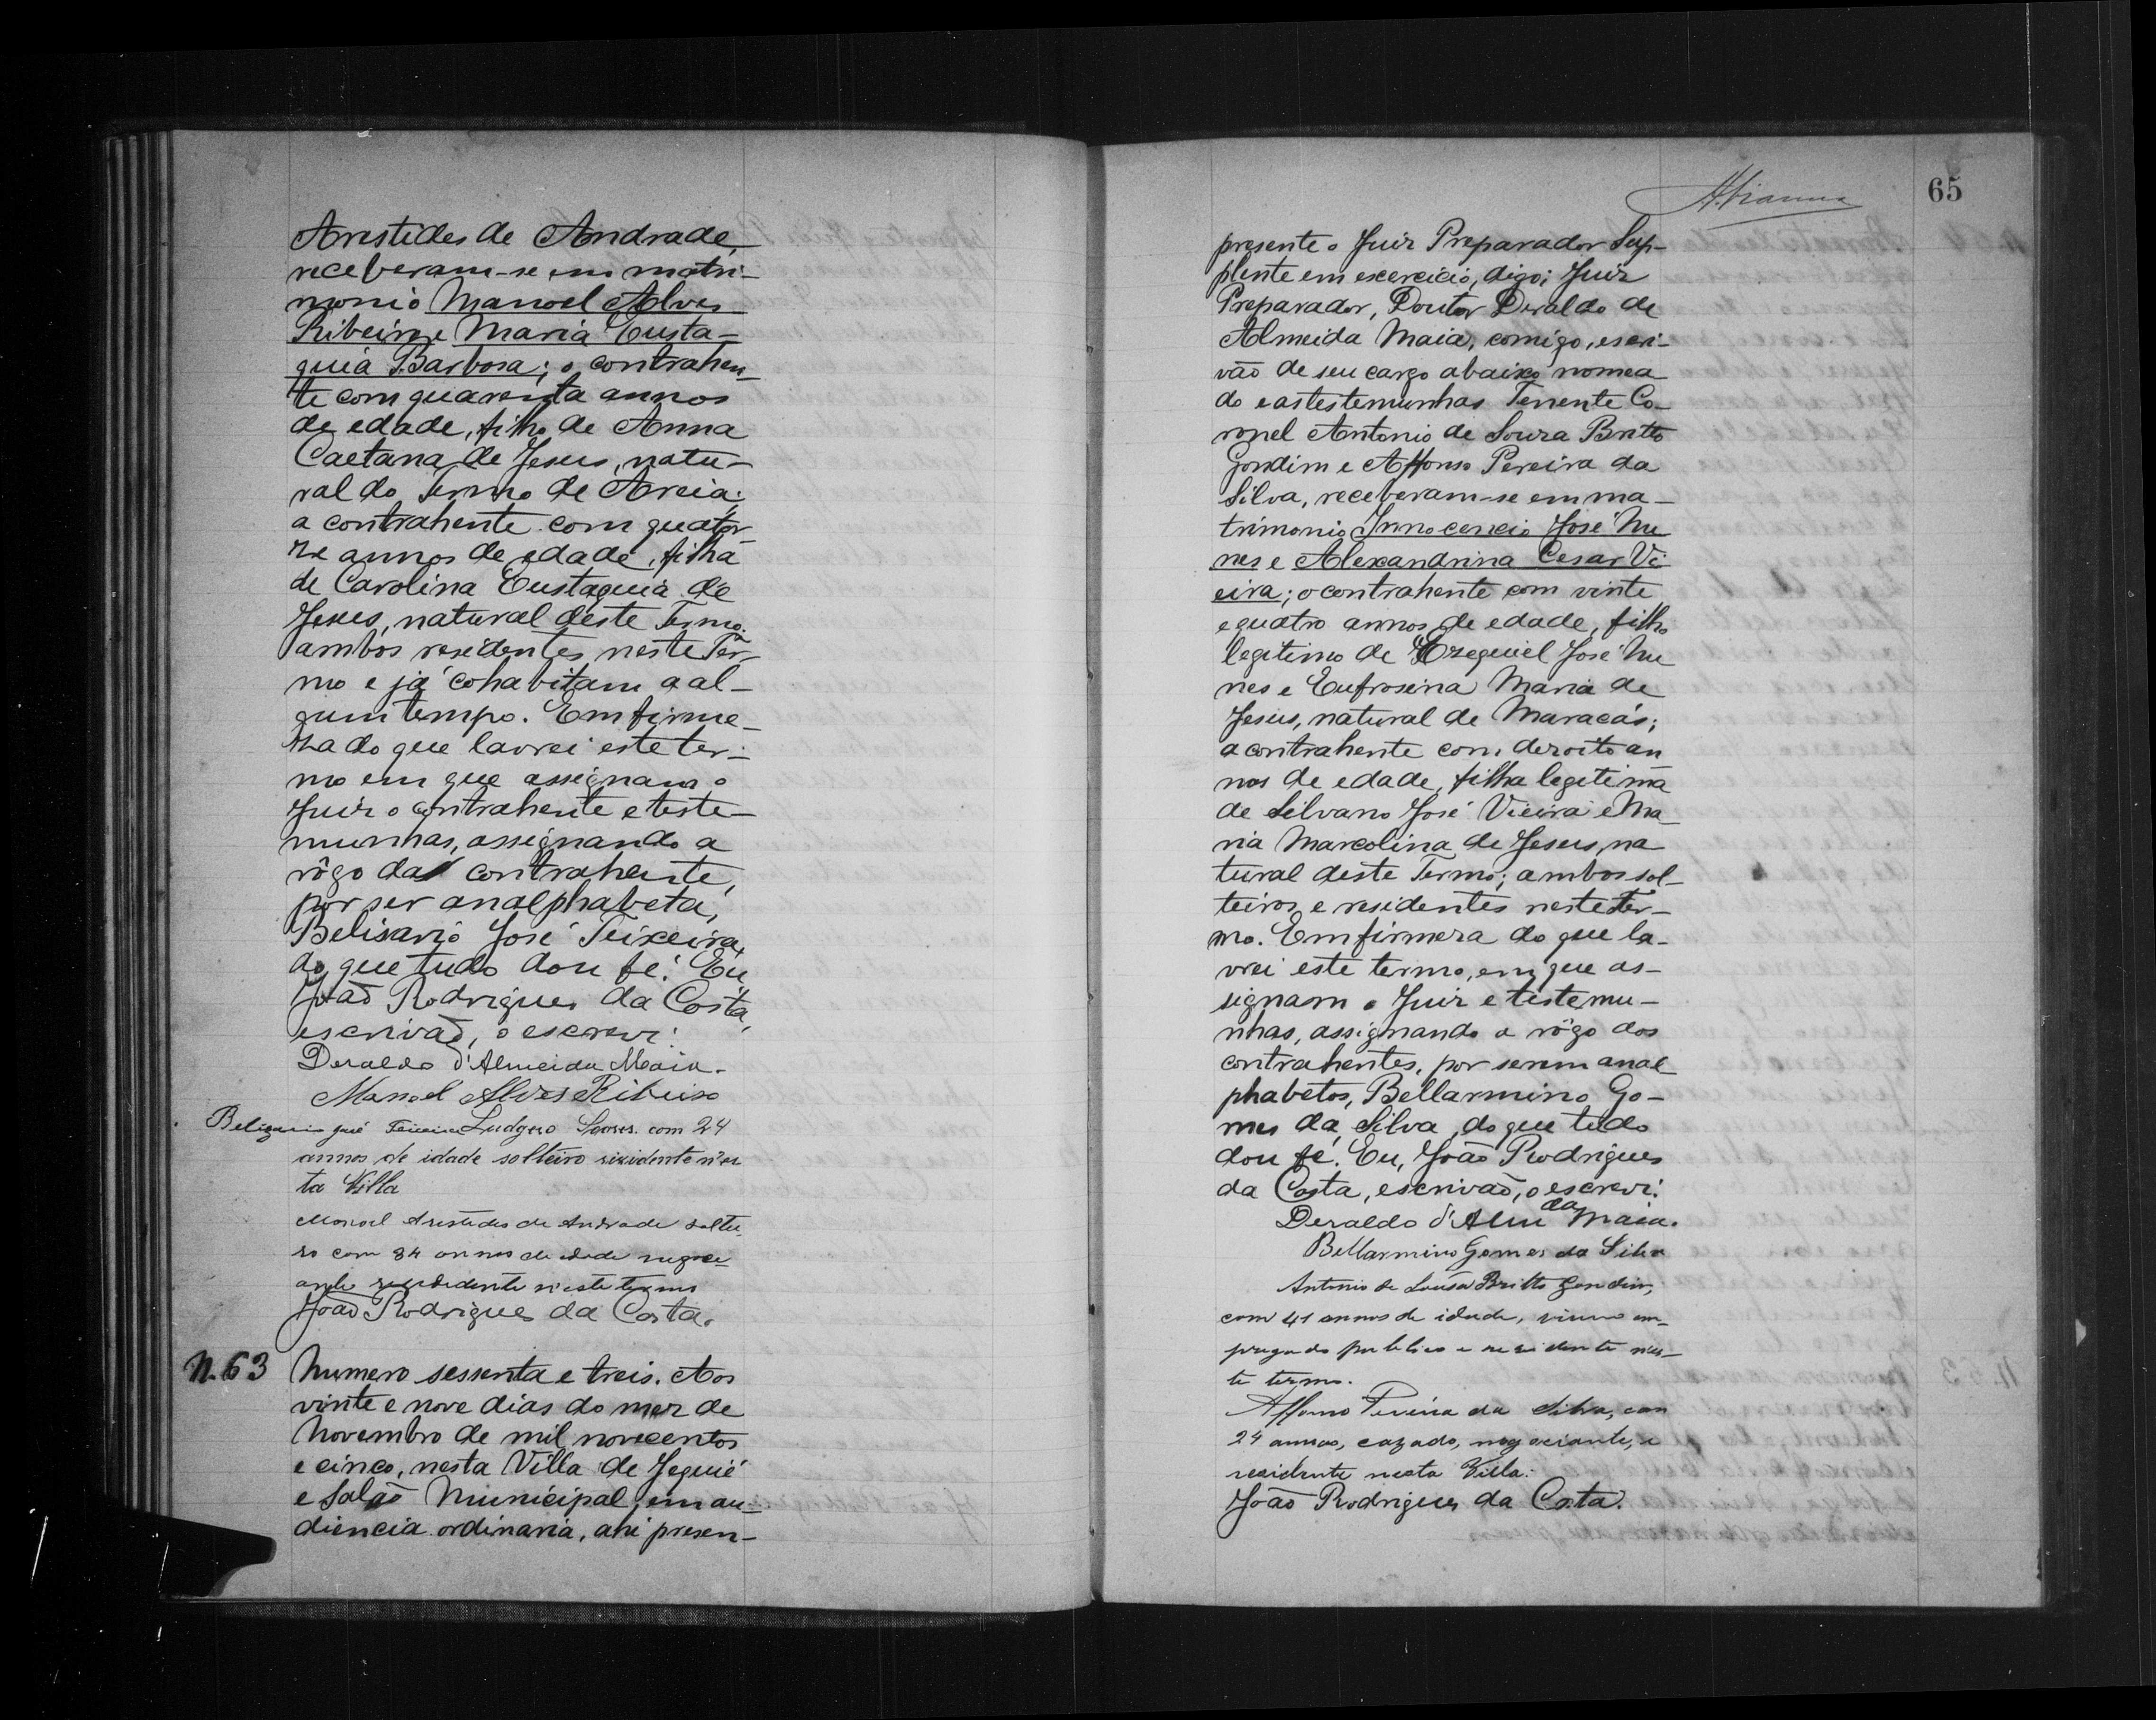 Arestides de Andrade,
receberam-se em matri-
monio Manoel Alves
Ribeiro e Maria Eusta-
quia Barbosa; o contrahen-
te com quarenta annos
de edade, filho de Anna
Caetana de Jesus, natu-
ral do Termo de Areia;
a contrahente com quator-
ze annos de edade, filha
de Carolina Eustaquia de
Jesus, natural deste Termo.
ambos residentes neste Ter-
mo e já cohabitam a al-
gum tempo. Em firme-
za do que lavrei este ter-
mo em que assignam o
Juiz o contrahente e teste-
munhas, assignando a
rôgo da contrahente,
por ser analphabeta,
Belisario José Teixeira,
do que tudo dou fé. Eu
João Rodrigues da Costa,
escrivão, o escrevi.
Deraldo d'Almeida Maia.
Manoel Alves Ribeiro
Belizario José Teixeira Ludgero Soares. com 24
annos de idade solteiro rizidente n'es
ta Villa
Manoel Arestides de Andrade soltei-
ro com 34 annos de idade negoci-
ante rezedidente n'este termo
João Rodrigues da Costa.
N. 63 Numero sessenta e treis. Aos
vinte e nove dias do mez de
Novembro de mil novecentos
e cinco, nesta Villa de Jequié
e Salão Municipal, em au-
diencia ordinaria, ahi presen-
65
presente o Juiz Preparador Sup-
plente em excercicio, digo; Juiz
Preparador, Doutor Deraldo de
Almeida Maia, comigo, escri-
vão de seu cargo abaixo nomea-
do e as testemunhas Tenente Co-
ronel Antonio de Souza Britto
Gondim e Affonso Pereira da
Silva, receberam-se em ma-
trimonio Innocencio José Nu
nes e Alexandrina Cesar Vi
eira; o contrahente com vinte
e quatro annos de edade, filho
legitimo de Ezequiel José Nu
nes e Eufrosina Maria de
Jesus, natural de Maracás;
a contrahente com dezoito an
nos de edade, filha legitima
de Silvano José Vieira e Ma-
ria Marcolina de Jesus, na
tural deste Termo; ambos sol-
teiros e residentes neste ter-
mo. Em firmeza do que la-
vrei este termo, em que as-
signam o Juiz e testemu-
nhas, assignando a rôgo dos
contrahentes, por serem anal
phabetos, Bellarmino Go-
mes da Silva, do que tudo
dou fé. Eu, João Rodrigues
da Costa, escrivão, o escrevi.
Deraldo d'Almda Maia.
Bellarmino Gomes da Silva
Antonio de Sousa Britto Gondim,
com 41 annos de idade, viuvo em-
pregado publico e residente n'es-
te termo.
Affonso Pereira da Silva, com
24 annos, cazado, negociante, e
residente nesta Villa.
João Rodrigues da Costa.